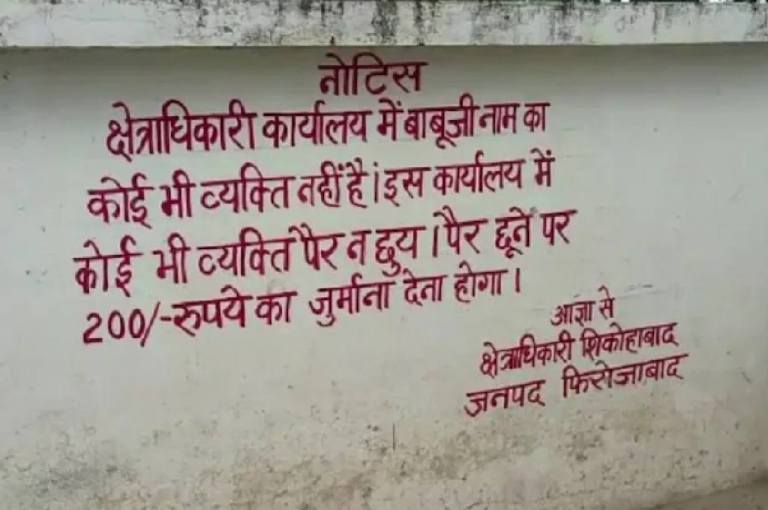 नोटिस
क्षेत्राधिकारी कार्यालय में बाबूजी नाम का
कोई भी व्यक्ति नहीं है। इस कार्यालय में
कोई भी व्यक्ति पैर न छुय । पैर छूने पर
200/-रुपये का जुर्माना देना होगा ।
आज्ञा से
क्षेत्राधिकारी शिकोहाबाद
जनपद फिरोजाबाद